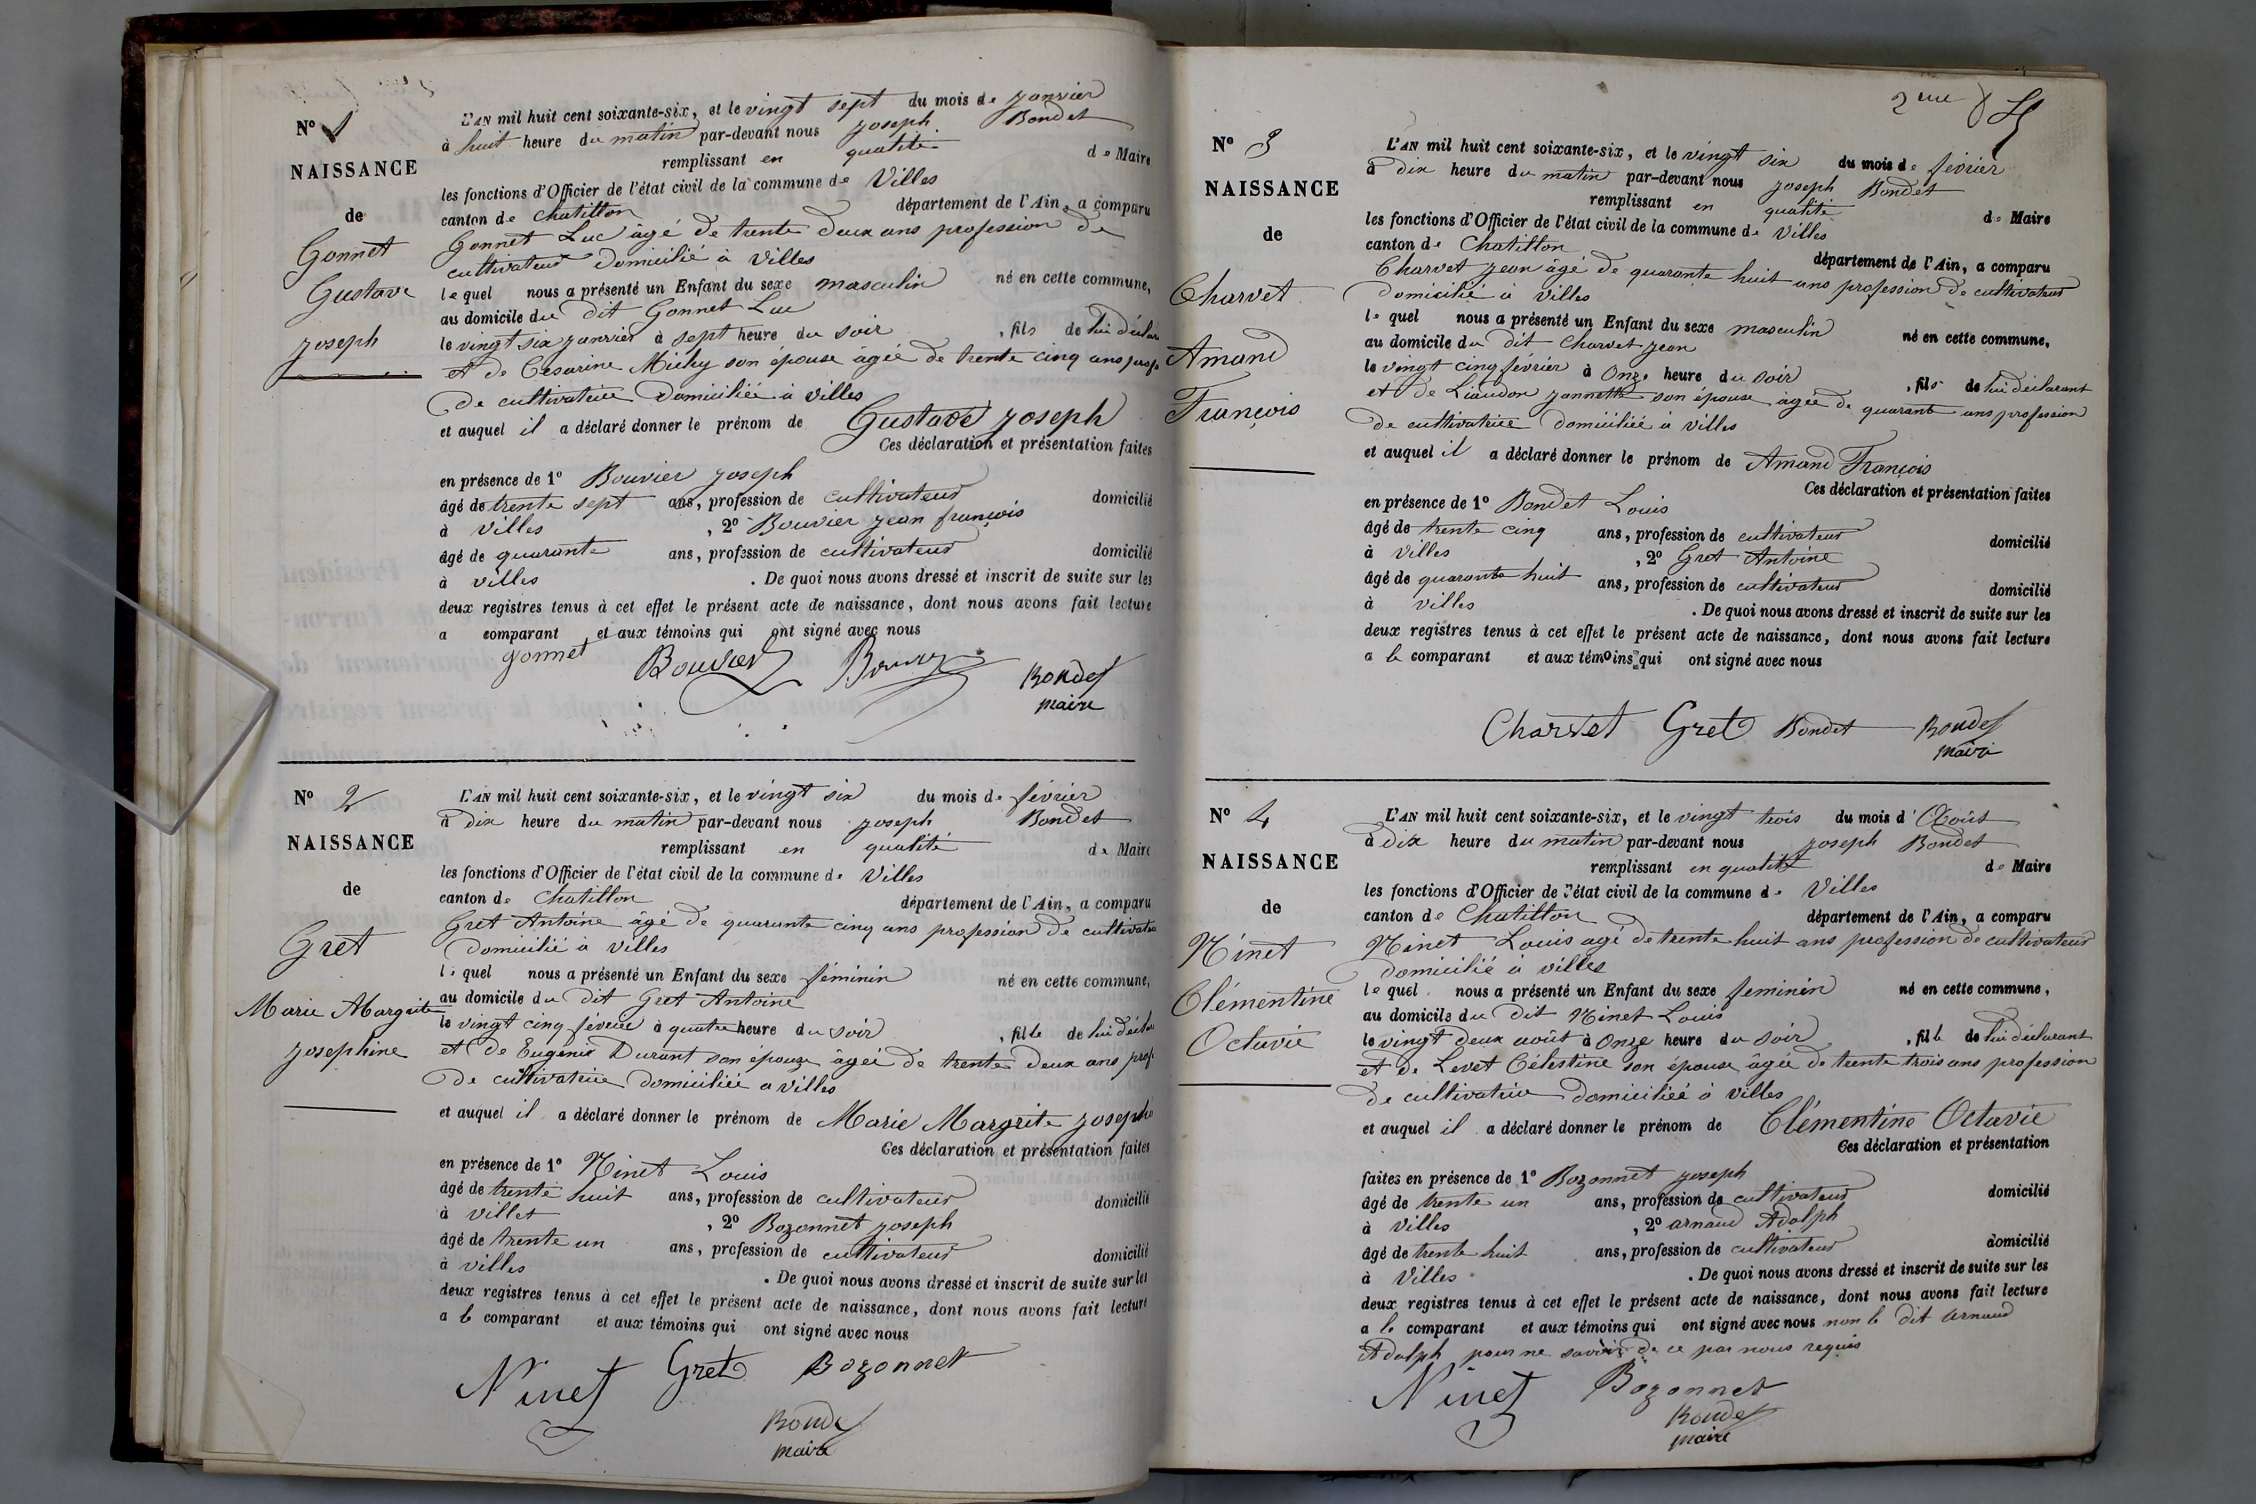 N° 1
NAISSANCE
de
Gonnet
Gustave
Joseph
L'AN mil huit cent soixante-six, et le vingt sept du mois de janvier
à huit heure du matin par-devant nous Joseph Bondet
remplissant en qualité de Maire
les fonctions d'Officier de l'état civil de la commune de Villes
canton de Chatillon département de l'Ain, a comparu
Gonnet Luc âgé de trente deux ans profession de
cultivateur domicilié à Villes
lequel nous a présenté un Enfant du sexe masculin né en cette commune,
au domicile du dit Gonnet Luc
le vingt six janvier à sept heure du soir, fils de lui déclar
et de Césarine Michy son épouse âgée de trente cinq ans prof
de cultivatrice domiciliée à Villes
et auquel il a déclaré donner le prénom de Gustave Joseph
Ces déclaration et présentation faites
en présence de 1° Bouvier Joseph
âgé de trente sept ans, profession de cultivateur domicilié
à Villes, 2° Bouvier Jean françois
âgé de quarante ans, profession de cultivateur domicilié
à Villes. De quoi nous avons dressé et inscrit de suite sur les
deux registres tenus à cet effet le présent acte de naissance, dont nous avons fait lecture
a comparant et aux témoins qui ont signé avec nous
gonnet Bouvier Bouvier Bondet
maire
N° 2
NAISSANCE
de
Gret
Marie Margrite
Josephine
L'AN mil huit cent soixante-six, et le vingt six du mois de février
à dix heure du matin par-devant nous Joseph Bondet
remplissant en qualité de Maire
les fonctions d'Officier de l'état civil de la commune de Villes
canton de Chatillon département de l'Ain, a comparu
Gret Antoine âgé de quarante cinq ans profession de cultivateu
domicilié à Villes
lequel nous a présenté un Enfant du sexe féminin né en cette commune,
au domicile du dit Gret Antoine
le vingt cinq février à quatre heure du soir, fille de lui déclar
et de Eugénie Durant son épouze âgée de trente deux ans prof
de cultivatrice domiciliée a Villes
et auquel il a déclaré donner le prénom de Marie Margrite Joseph
Ces déclaration et présentation faites
en présence de 1° Ninet Louis
âgé de trente huit ans, profession de cultivateur domicilié
à Villes, 2° Bozonnet Joseph
âgé de trente un ans, profession de cultivateur domicilié
à Villes. De quoi nous avons dressé et inscrit de suite sur les
deux registres tenus à cet effet le présent acte de naissance, dont nous avons fait lecture
a le comparant et aux témoins qui ont signé avec nous
Ninet Gret Bozonnet
Bondet
maire
2eme
N° 3
NAISSANCE
de
Charvet
Amand
François
L'AN mil huit cent soixante-six, et le vingt six du mois de février
à dix heure du matin par-devant nous Joseph Bondet
remplissant en qualité de Maire
les fonctions d'Officier de l'état civil de la commune de Villes
canton de Chatillon département de l'Ain, a comparu
Charvet Jean âgé de quarante huit ans profession de cultivateur
domicilié à Villes
lequel nous a présenté un Enfant du sexe masculin né en cette commune,
au domicile du dit Charvet Jean
le vingt cinq février à Onze heure du soir, fils de lui déclarant
et de Liaudon Jannette son épouse âgée de quarante ans profession
de cultivatrice domiciliée à Villes
et auquel il a déclaré donner le prénom de Amand François
Ces déclaration et présentation faites
en présence de 1° Bondet Louis
âgé de trente cinq ans, profession de cultivateur domicilié
à Villes, 2° Gret Antoine
âgé de quarante huit ans, profession de cultivateur domicilié
à Villes. De quoi nous avons dressé et inscrit de suite sur les
deux registres tenus à cet effet le présent acte de naissance, dont nous avons fait lecture
a le comparant et aux témoins qui ont signé avec nous
Charvet Gret Bondet Bondet
maire
N° 4
NAISSANCE
de
Ninet
Clémentine
Octavie
L'AN mil huit cent soixante-six, et le vingt trois du mois d'Août
à dix heure du matin par-devant nous Joseph Bondet
remplissant en qualité de Maire
les fonctions d'Officier de l'état civil de la commune de Villes
canton de Chatillon département de l'Ain, a comparu
Ninet Louis agé de trente huit ans profession de cultivateur
domicilié à Villes
lequel nous a présenté un Enfant du sexe feminin né en cette commune,
au domicile du dit Ninet Louis
le vingt deux août à Onze heure du soir, fille de lui déclarant
et de Levet Célestine son épouse âgée de trente trois ans profession
de cultivatrice domiciliée à Villes
et auquel il a déclaré donner le prénom de Clémentine Octavie
Ces déclaration et présentation
faites en présence de 1° Bozonnet Joseph
âgé de trente un ans, profession de cultivateur domicilié
à Villes, 2° arnaud Adolph
âgé de trente huit ans, profession de cultivateur domicilié
à Villes. De quoi nous avons dressé et inscrit de suite sur les
deux registres tenus à cet effet le présent acte de naissance, dont nous avons fait lecture
a le comparant et aux témoins qui ont signé avec nous non le dit Arnaud
Adolph pour ne savoir de ce par nous requis
Ninet Bozonnet
Bondet
maire